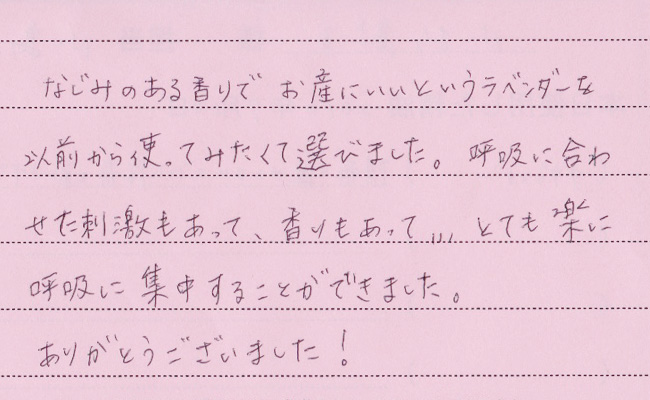 なじみのある香りで お産にいいというラベンダーを
以前から使ってみたくて選びました。呼吸に合わ
せた刺激もあって、香りもあって、、、とても楽に
呼吸に集中することができました。
ありがとうございました！